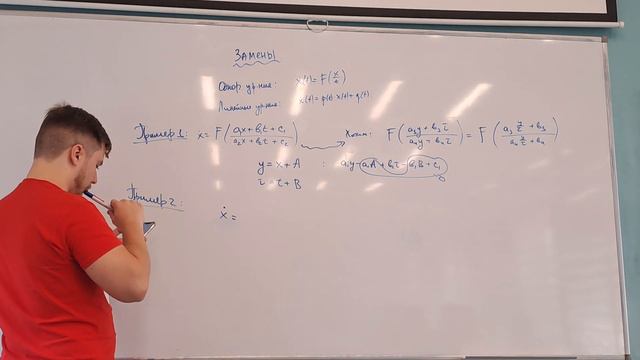 Замены
Однор ур-ния: x'(t) = F(x/t)
Линейные ур-ния: x'(t) = p(t) x(t) + q(t)
Пример 1: ẋ = F((a₁x + b₁t + c₁)/(a₂x + b₂t + c₂)) Хотим: F((a₃y + b₃τ)/(a₄y + b₄τ)) = F((a₃ y/τ + b₃)/(a₄ y/τ + b₄))
y = x + A : a₁y - a₁A + b₁τ - b₁B + c₁
τ = t + B
Пример 2: ẋ =